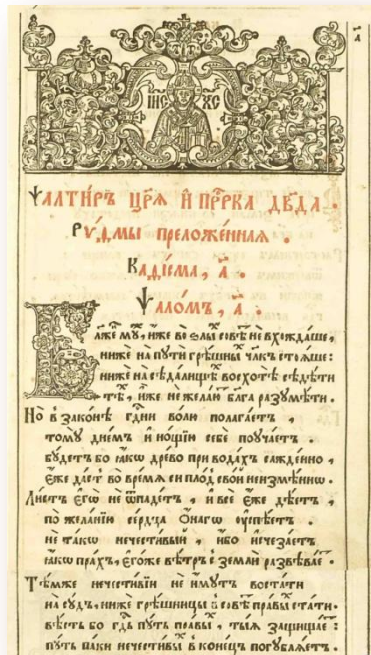 ІИ҃С ХС
ѰАЛТИ́РЬ ЦР҃Ѧ И҆ ПРР҃КА ДВ҃ДА .
РѴ́ѲМЫ ПРЕЛОЖЕ́ННАѦ .
КАѲІ́СМА , А҃ .
ѰАЛО́МЪ , А҃ .
Бл҃же́ мꙋ , и҆́же во ѕлы́ совѣ́ не вхожда́ше ,
ниже́ на пꙋти́ грѣ́шны чл҃къ стоѧ́ше :
ниже́ на сѣда́лищѣ восхотѣ̀ сѣдѣ́ти
тѣ́ , и҆́же не жела́ю бл҃га разꙋмѣ́ти .
Но в̾ зако́нѣ гдⷭ҇ни во́ли полага́етъ ,
томꙋ̀ дне́мъ и҆ но́щїю себѐ поꙋча́етъ .
бꙋ́детъ бо ꙗ҆́кѡ дре́во при вода́хъ сажде́нно ,
Е҆́же да́ст̾ во вре́мѧ си пло́д̾ сво́й неизмѣ́ннѡ .
Ли́стъ Е҆гѡ̀ не ѿпаде́тъ , и҆ всѐ Е҆́же дѣ́етъ ,
по жела́нїю се́рдца Ѻ҆́нагѡ ᲂу҆спѣ́етъ .
не та́кѡ нечести́вый , и҆́бо и҆счеза́етъ
ꙗ҆́кѡ пра́хъ , є҆гѡ́же вѣ́тръ с̾ землѝ развѣва́е .
Тѣ́мже нечести́вїи не и҆́мꙋтъ воста́ти
на сꙋ́дъ , ниже́ грѣ́шницы в̾ совѣ́ пра́вы ста́ти .
вѣ́сть бо гдⷭ҇ь пꙋ́ть пра́вы , ты́ѧ защища́е :
пꙋ́ть па́ки нечести́вы в̾ коне́цъ погꙋблѧ́етъ .